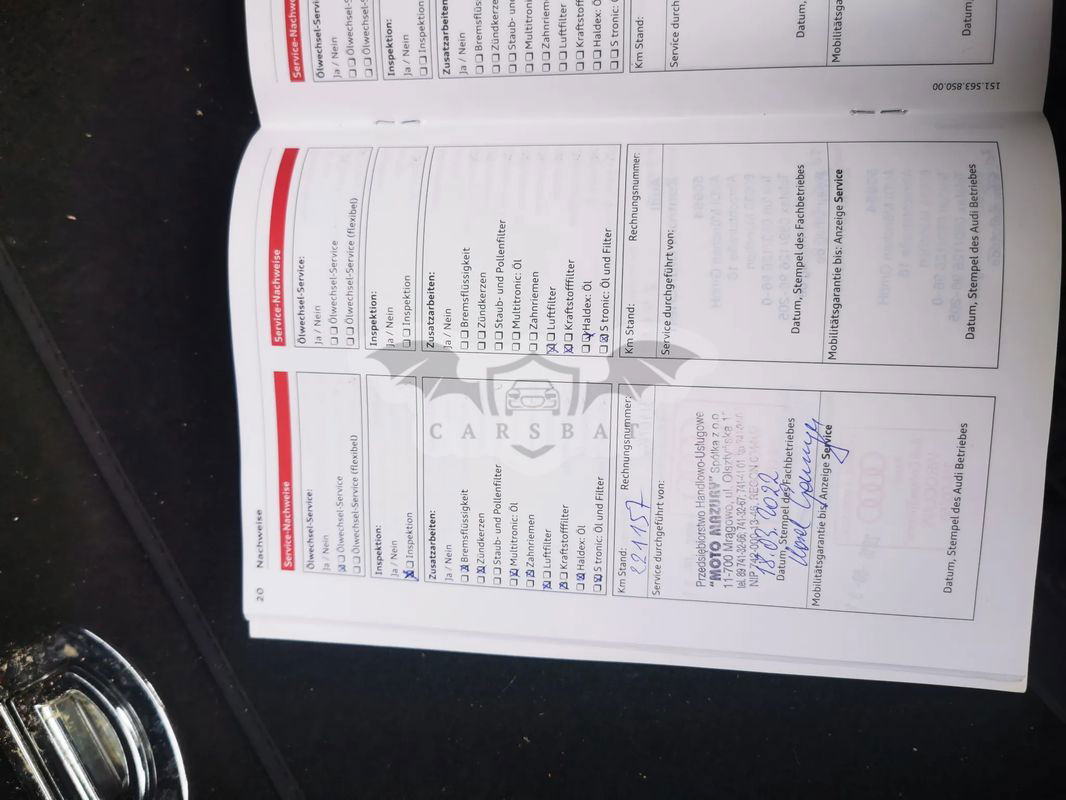 20 Nachweise
Service-Nachweise
Ölwechsel-Service:
Ja / Nein
☒ ☐ Ölwechsel-Service
☐ ☐ Ölwechsel-Service (flexibel)
Inspektion:
Ja / Nein
☒ ☐ Inspektion
Zusatzarbeiten:
Ja / Nein
☐ ☒ Bremsflüssigkeit
☐ ☒ Zündkerzen
☐ ☐ Staub- und Pollenfilter
☐ ☒ Multitronic: Öl
☐ ☒ Zahnriemen
☒ ☐ Luftfilter
☒ ☐ Kraftstofffilter
☐ ☒ Haldex: Öl
☐ ☒ S tronic: Öl und Filter
Km Stand: Rechnungsnummer:
221157
Service durchgeführt von:
Przedsiębiorstwo Handlowo-Usługowe
"MOTO MAZURY" Spółka z o.o.
11-700 Mrągowo, ul. Olsztyńska
tel. 89 741-32-66, 741-32-67, 741-11-01
NIP 742-000-13-46 REGON
18.03.2022
Datum, Stempel des Fachbetriebes
Mobilitätsgarantie bis: Anzeige Service
Datum, Stempel des Audi Betriebes
Service-Nachweise
Ölwechsel-Service:
Ja / Nein
☐ ☐ Ölwechsel-Service
☐ ☐ Ölwechsel-Service (flexibel)
Inspektion:
Ja / Nein
☐ ☐ Inspektion
Zusatzarbeiten:
Ja / Nein
☐ ☐ Bremsflüssigkeit
☐ ☐ Zündkerzen
☐ ☐ Staub- und Pollenfilter
☐ ☐ Multitronic: Öl
☐ ☐ Zahnriemen
☒ ☐ Luftfilter
☒ ☐ Kraftstofffilter
☐ ☒ Haldex: Öl
☐ ☒ S tronic: Öl und Filter
Km Stand: Rechnungsnummer:
Service durchgeführt von:
Datum, Stempel des Fachbetriebes
Mobilitätsgarantie bis: Anzeige Service
Datum, Stempel des Audi Betriebes
151.563.850.00
Service-Nachw
Ölwechsel-Service
Ja / Nein
☐ ☐ Ölwechsel-S
☐ ☐ Ölwechsel-S
Inspektion:
Ja / Nein
☐ ☐ Inspektion
Zusatzarbeiten:
Ja / Nein
☐ ☐ Bremsflüss
☐ ☐ Zündkerze
☐ ☐ Staub- und
☐ ☐ Multitroni
☐ ☐ Zahnrieme
☐ ☐ Luftfilter
☐ ☐ Kraftstoff
☐ ☐ Haldex: Ö
☐ ☐ S tronic: Ö
Km Stand:
Service durch
Datum,
Mobilitätsga
Datum,
CARSBAT